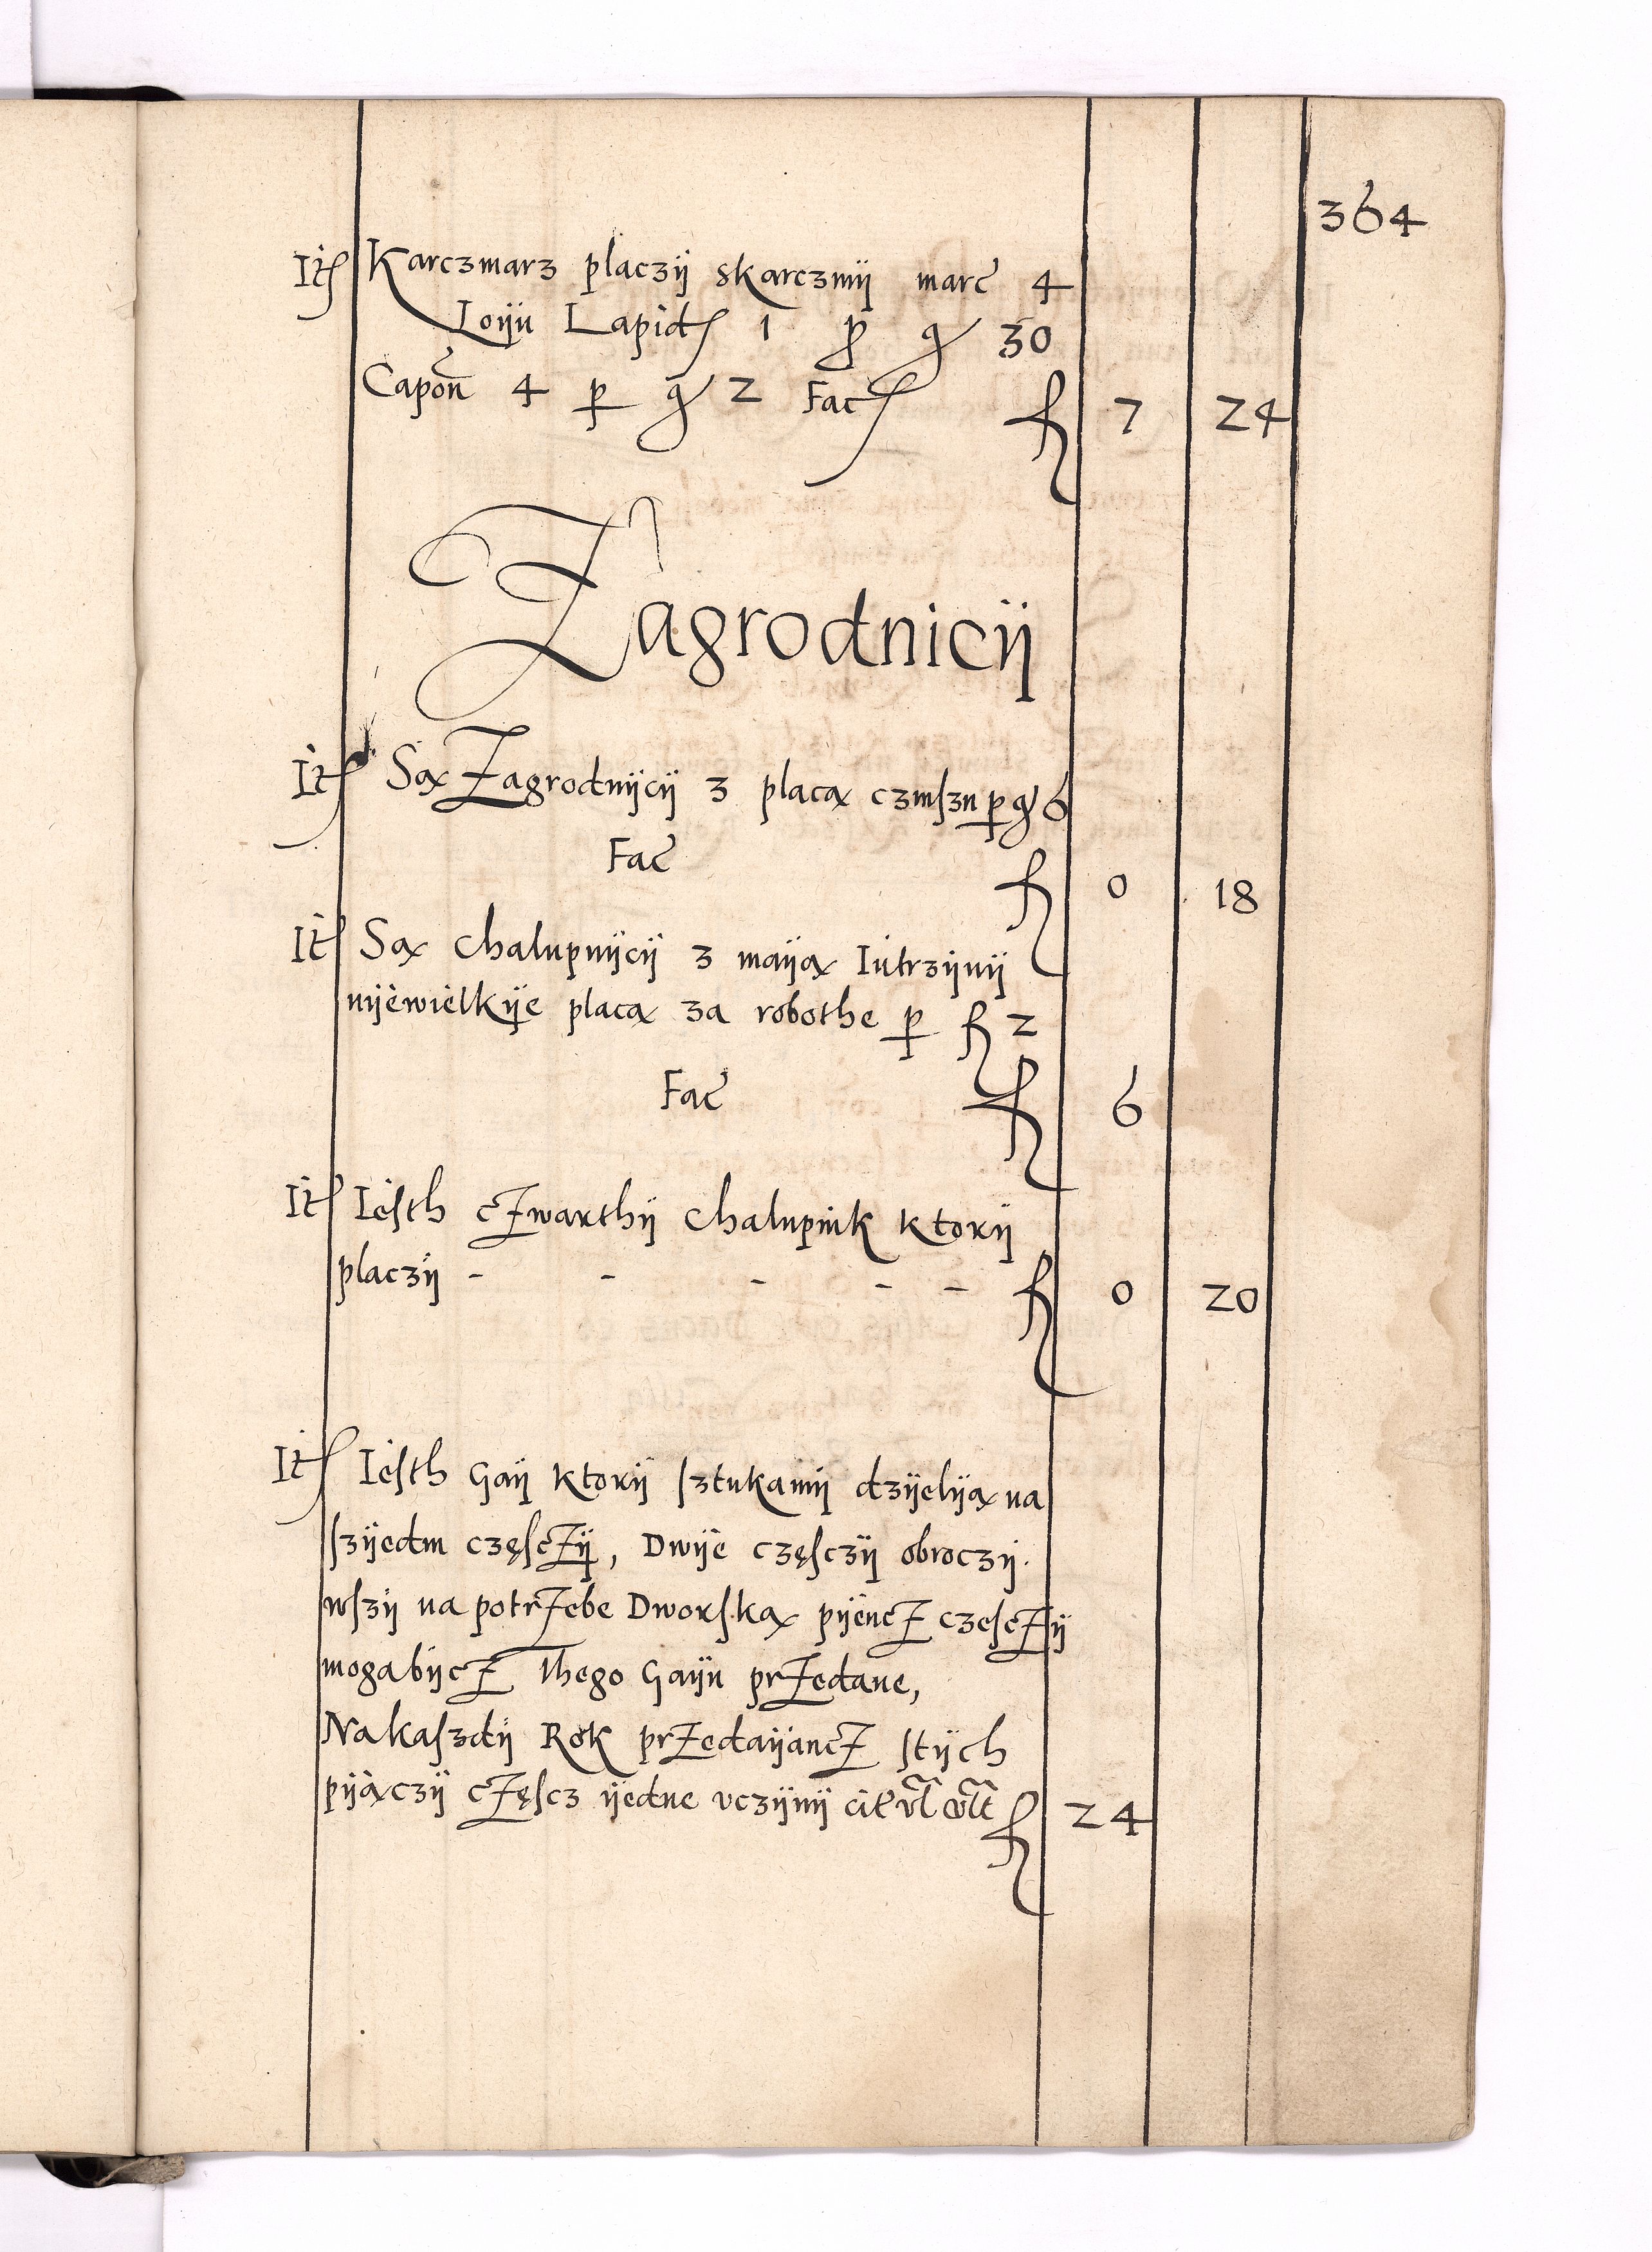 364
Itē Karczmarz placzÿ skarczmÿ marc̃ 4
Loÿu Lapidꝭ 1 p̱ gͬ 30
Capoñ 4 ꝑ gͬ 2 Facꝭ fl 7 24
Zagrodnicÿ
Itē Sąx Zagrodnÿcÿ 3 placą czÿnszu ꝑ gͬ 6
Fac̃ fl 0 18
Itē Są Chalupnÿcÿ 3 maÿą Iutrzÿnÿ
nÿewielkÿe placą za robothe ꝑ fl 2
Fac̃ fl 6
Itē Iesth cZwarthÿ Chalupnik ktorÿ
placzÿ - - - - - fl 0 20
Itē Iesth Gaÿ ktorÿ sztukamÿ dzÿelÿą na
szÿedm częscZÿ, Dwÿe częsczÿ obroczÿ
wszÿ na potrZebe Dworską pÿencZ czescZÿ
moga bÿcZ Thego Gaÿu prZedane,
Na kaszdÿ Rok prZedaÿancZ stÿch
pÿączÿ cZęscz ÿedne vczÿnÿ fl 24